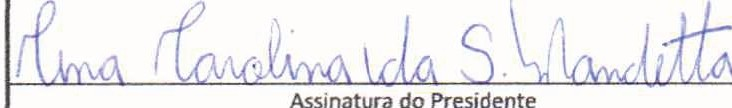 Ana Carolina da S. Mandetta
Assinatura do Presidente